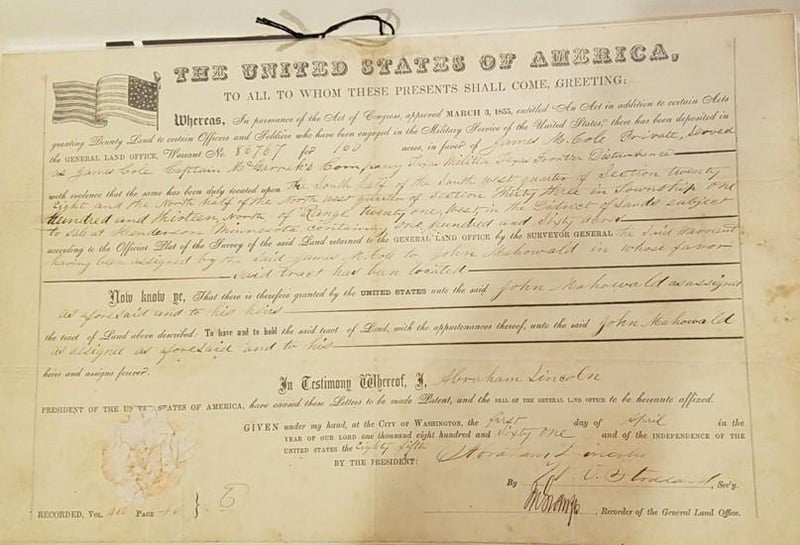 THE UNITED STATES OF AMERICA,
TO ALL TO WHOM THESE PRESENTS SHALL COME, GREETING:
Whereas, In pursuance of the Act of Congress, approved MARCH 3, 1855, entitled "An Act in addition to certain Acts
granting Bounty Land to certain Officers and Soldiers who have been engaged in the Military Service of the United States," there has been deposited in
the GENERAL LAND OFFICE, Warrant No. 86767 for 160 acres, in favor of James M. Cole Private, served
as James Cole Captain Company Texas Militia Texas Frontier Disturbance
with evidence that the same has been duly located upon The South half of the South west quarter of Section twenty
eight and the North half of the North west quarter of Section Thirty three in Township One
hundred and thirteen, North of Range twenty one, West, in the District of Lands subject
to sale at Henderson Minnesota containing one hundred and sixty acres
according to the Official Plat of the Survey of the said Land returned to the GENERAL LAND OFFICE by the SURVEYOR GENERAL the said Warrant
having been assigned by the said James M. Cole to John Mahowald in whose favor
said tract has been located
Now know ye, That there is therefore granted by the UNITED STATES unto the said John Mahowald as assignee
as aforesaid and to his heirs
the tract of Land above described. To have and to hold the said tract of Land, with the appurtenances thereof, unto the said John Mahowald
as assignee as aforesaid and to his
heirs and assigns forever.
In Testimony Whereof, I, Abraham Lincoln
PRESIDENT OF THE UNITED STATES OF AMERICA, have caused these Letters to be made Patent, and the SEAL OF THE GENERAL LAND OFFICE to be hereunto affixed.
GIVEN under my hand, at the CITY OF WASHINGTON, the first day of April in the
YEAR OF OUR LORD one thousand eight hundred and Sixty One and of the INDEPENDENCE OF THE
UNITED STATES the Eighty fifth
BY THE PRESIDENT: Abraham Lincoln
By W. O. Stoddard, Sec'y.
RECORDED, VOL. PAGE
, Recorder of the General Land Office.